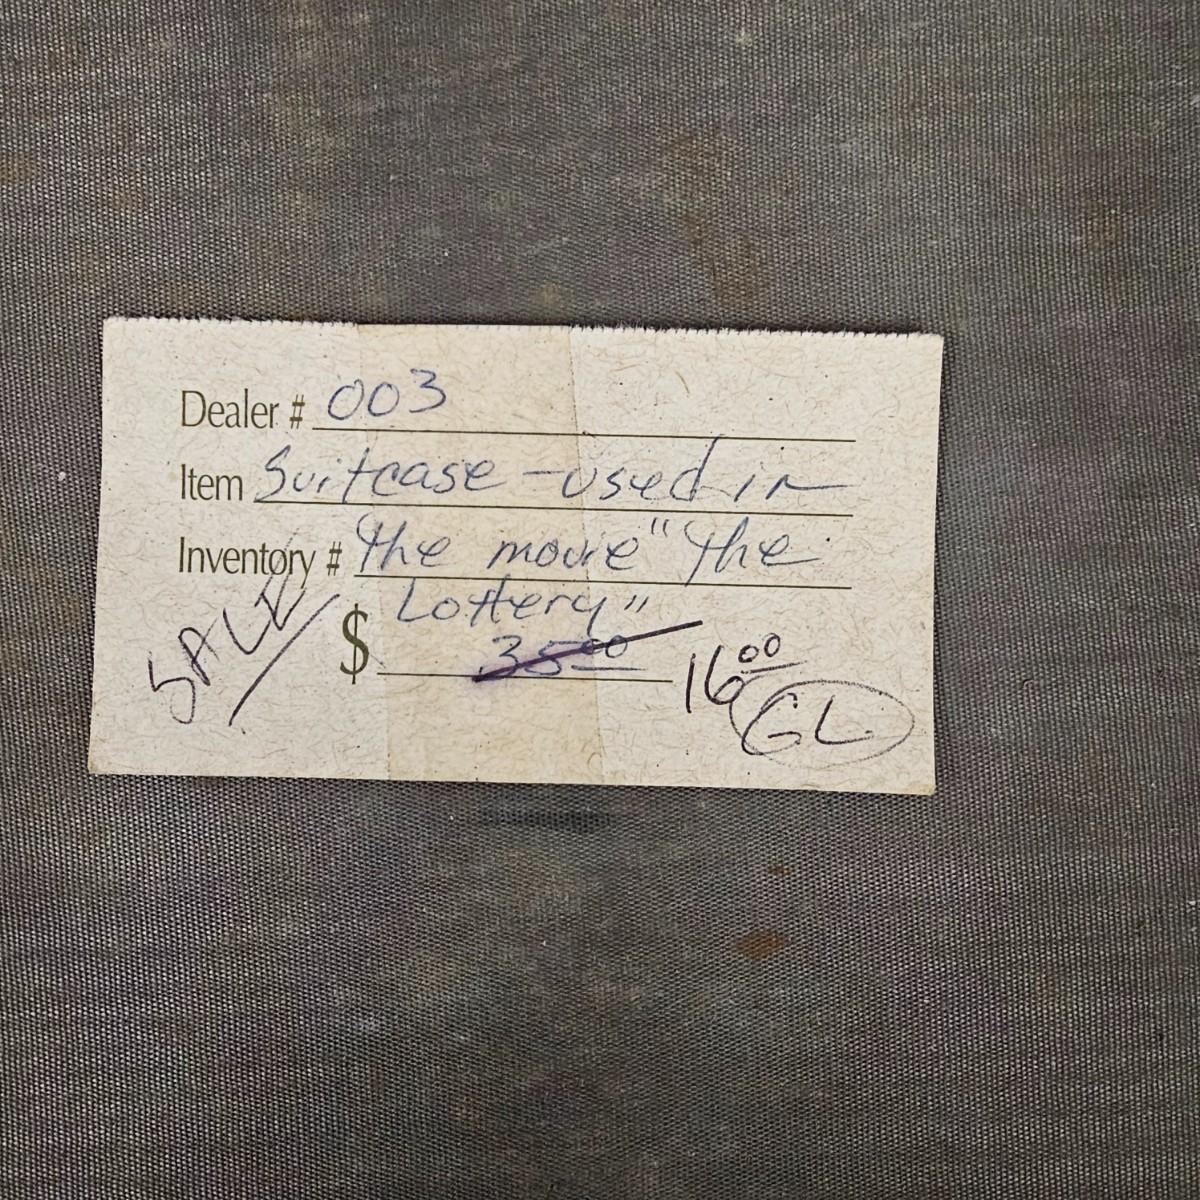 Dealer # 003
Item Suitcase - used in
Inventory # The movie "The
Lottery"
SALE
$ 35 00 16 00
GL